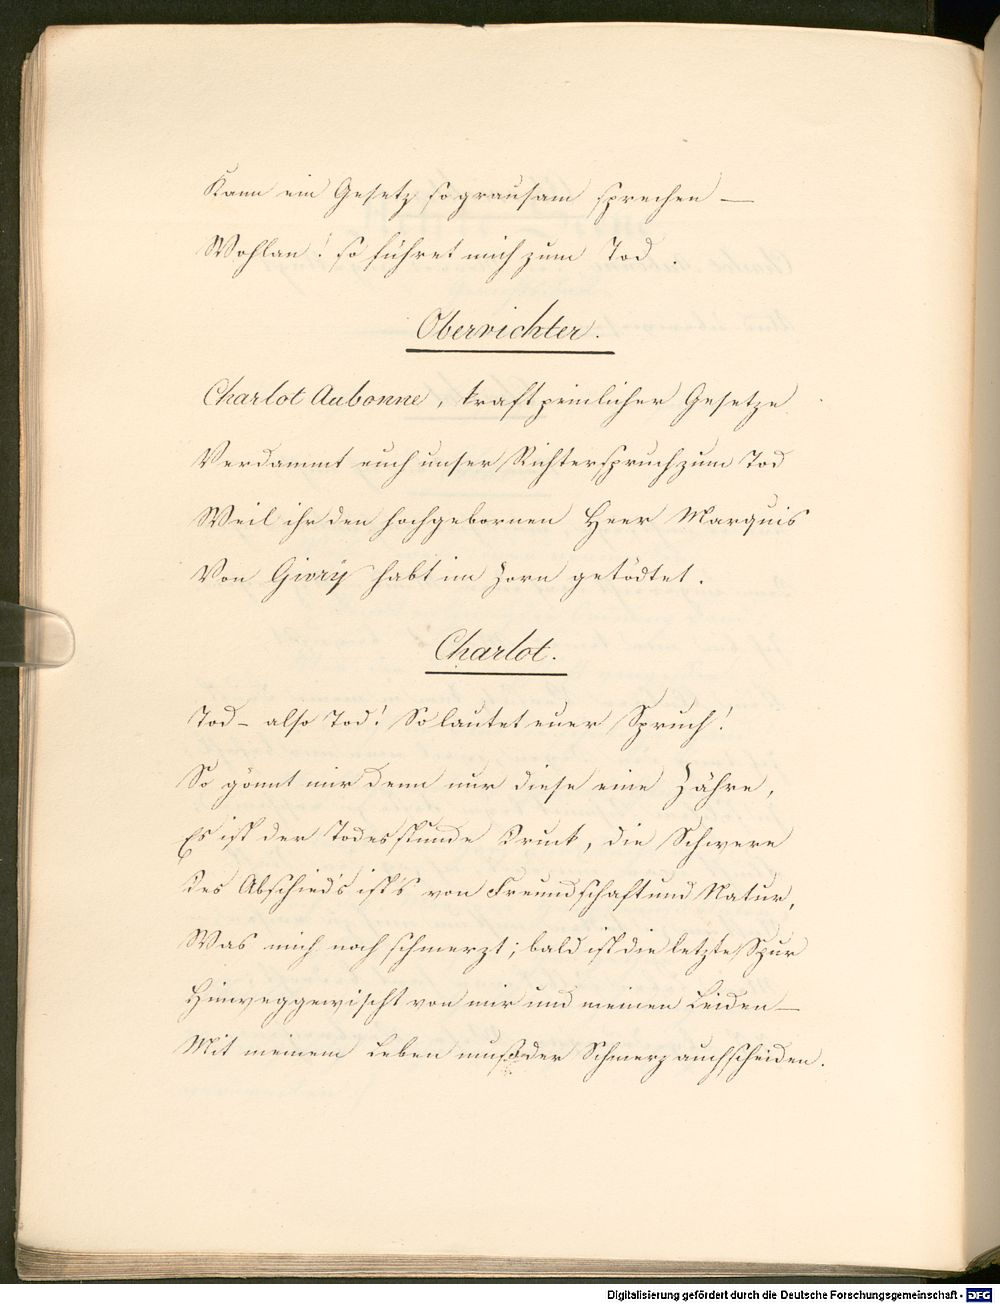 Kann ein Gesetz so grausam sprechen —
Wohlan! so führet mich zum Tod.
Oberrichter.
Charlot Aubonne, kraft peinlicher Gesetze
Verdammt euch unser Richterspruch zum Tod
Weil ihr den hochgebornen Herr Marquis
Von Givry habt im Zorn getödtet.
Charlot.
Tod – also Tod! So lautet euer Spruch!
So gönnt mir denn nur diese eine Zähre,
Es ist der Todesstunde Druck, die Schwere
Des Abschied's ist's von Freundschaft und Natur,
Was mich noch schmerzt; bald ist die letzte Spur
Hinweggewischt von mir und meinen Leiden —
Mit meinem Leben muß der Schmerz auch scheiden.
Digitalisierung gefördert durch die Deutsche Forschungsgemeinschaft - DFG